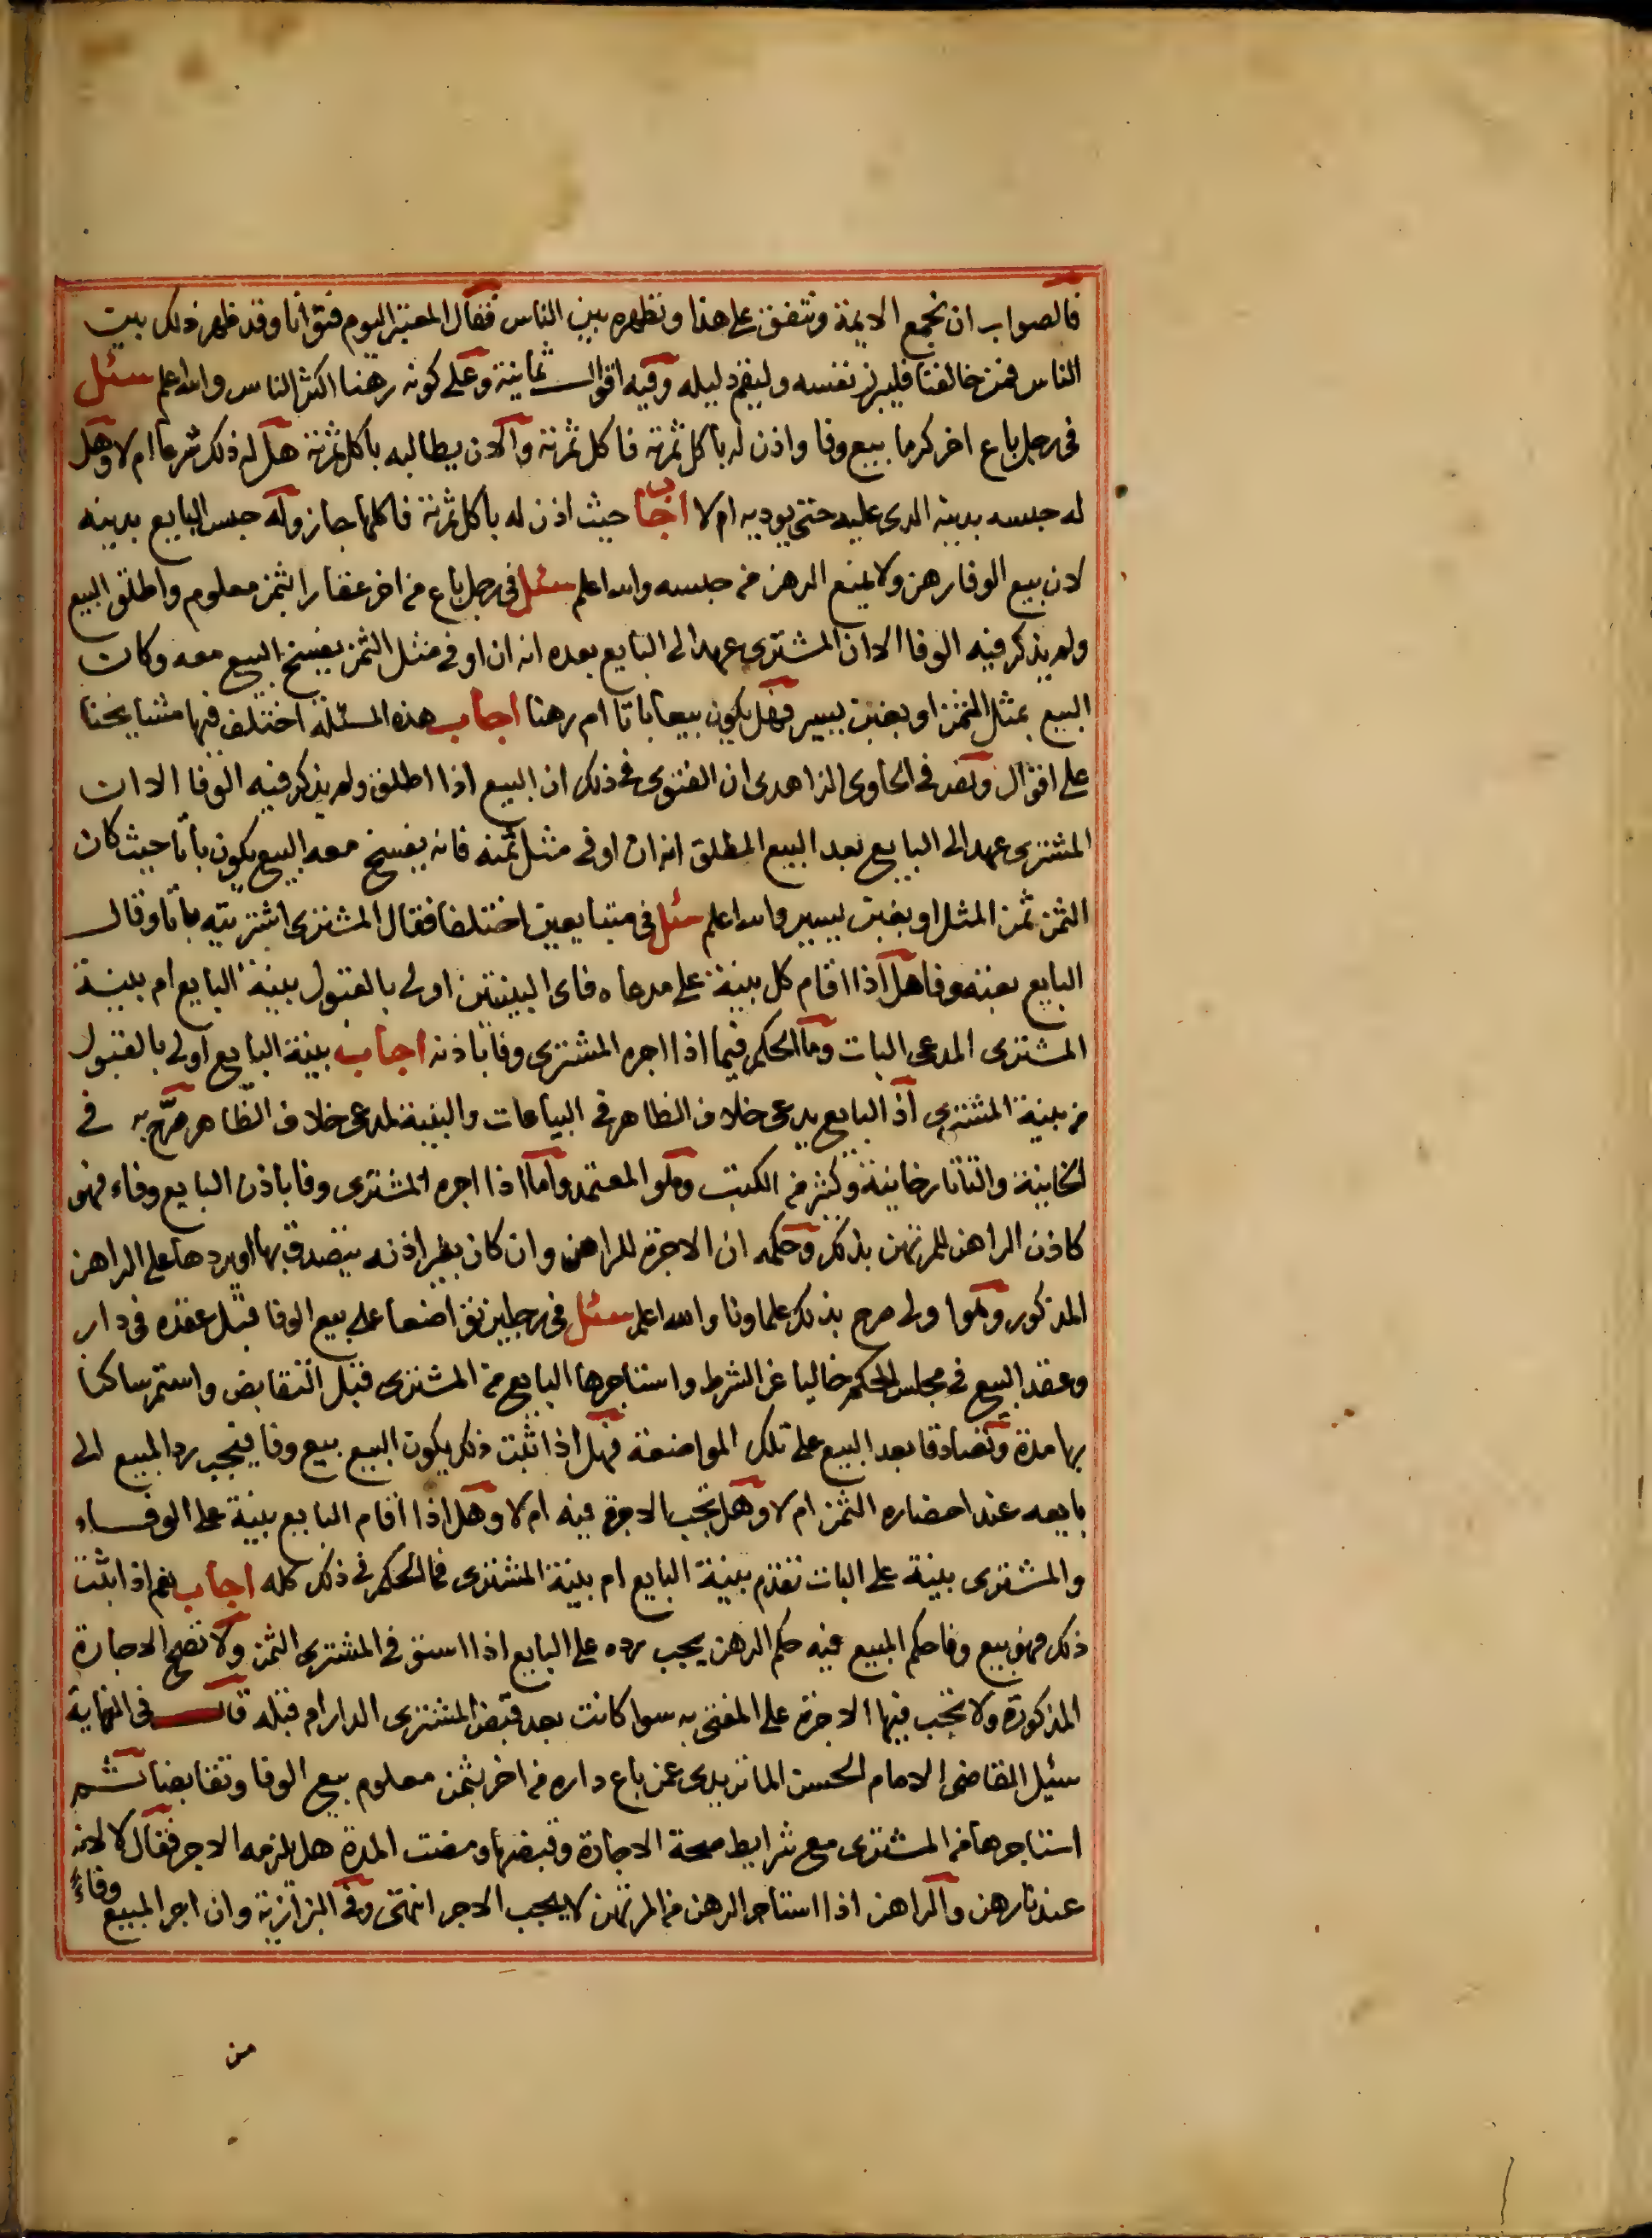 فالصواب ان نجمع الايمة ونتفق على هذا ونظهره بين الناس فقال المعتبر اليوم فتوانا وقد ظهر ذلك بين
الناس فمن خالفنا فليبرز نفسه وليقم دليله وفيه اقوال ثمانية وعلى كونه رهنا اكثر الناس والله اعلم سئل
في رجل باع اخر كرما بيع وفا واذن له باكل ثمرته فاكل ثمرته والان يطالبه باكل ثمرته هل له ذلك شرعا ام لا وهل
له حبسه بدينه الدى عليه حتى يوديه ام لا اجاب حيث اذن له باكل ثمرته فاكلها جاز وله حبس البايع بدينه
لان بيع الوفا رهن ولا يمنع الرهن من حبسه والله اعلم سئل في رجل باع من اخر عقارا بثمن معلوم واطلق البيع
ولم يذكر فيه الوفا الا ان المشترى عهد الى البايع بعده انه ان اوفى مثل الثمن يفسخ البيع معه وكان
البيع بمثل الثمن او بغبن يسير فهل يكون بيعا باتا ام رهنا اجاب هذه المسئلة اختلف فيها مشايخنا
على اقوال ونص في الحاوى الزاهدى ان الفتوى في ذلك ان البيع اذا اطلق ولم يذكر فيه الوفا الا ان
المشترى عهد الى البايع بعد البيع المطلق انه ان اوفى مثل ثمنه فانه يفسخ معه البيع يكون باتا حيث كان
الثمن ثمن المثل او بغبن يسير والله اعلم سئل في متبايعين اختلفا فقال المشترى اشتريته باتا وقال
البايع بعته وفا هل اذا اقام كل بينة على مدعاه فاى البينتين اولى بالقبول بينة البايع ام بينة
المشترى المدعى البات وما الحكم فيما اذا اجره المشترى وفا باذنه اجاب بينة البايع اولى بالقبول
من بينة المشترى اذ البايع يدعى خلاف الظاهر في البياعات والبينة لمدعى خلاف الظاهر صرح به في
الخانية والتاتارخانية وكثير من الكتب وهو المعتمد واما اذا اجره المشترى وفا باذن البايع وفاء فهو
كاذن الراهن للمرتهن بذلك وحكمه ان الاجرة للراهن وان كان بغير اذنه يتصدق بها او يردها على الراهن
المذكور وهو اولى صرح بذلك علماونا والله اعلم سئل في رجلين تواضعا على بيع الوفا قبل عقده في دار
وعقد البيع في مجلس الحكم خاليا عن الشرط واستاجرها البايع من المشترى قبل التقابض واستمر ساكنا
بها مدة وتصادقا بعد البيع على تلك المواضعة فهل اذا ثبت ذلك يكون البيع بيع وفا فيجب رد المبيع الى
بايعه عند احضاره الثمن ام لا وهل تجب الاجرة فيه ام لا وهل اذا اقام البايع بينة على الوفاء
والمشترى بينة على البات تقدم بينة البايع ام بينة المشترى فما الحكم في ذلك كله اجاب نعم اذا ثبت
ذلك فهو بيع وفا حكم المبيع فيه حكم الرهن يجب رده على البايع اذا استوفى المشترى الثمن ولا تصح الاجارة
المذكورة ولا تجب فيها الاجرة على المفتى به سوا كانت بعد قبض المشترى الدار ام قبله قال في النهاية
سئيل القاضى الامام الحسن الماتريدى عمن باع داره من اخر بثمن معلوم بيع الوفا وتقابضا ثم
استاجرها من المشترى مع شرايط صحة الاجارة وقبضها ومضت المدة هل يلزمه الاجر فقال لا لانه
عندنا رهن والراهن اذا استاجر الرهن من المرتهن لا يجب الاجر انتهى وفى البزازية وان اجر المبيع وفاء
من